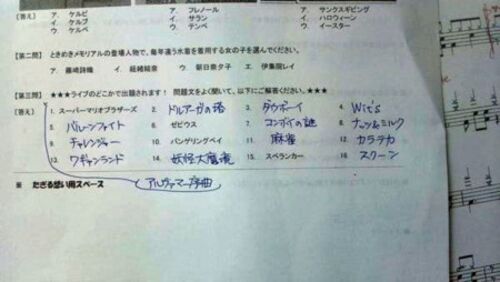 【答え】 ア. ケルビ ア. フレノール ア. サンクスギビング
イ. ケルプ イ. サラン イ. ハロウィーン
ウ. ケルベ ウ. テンペ ウ. イースター
【第二問】 ときめきメモリアルの登場人物で、毎年違う水着を着用する女の子を選んでください。
ア. 藤崎詩織 イ. 紐緒結奈 ウ. 朝日奈夕子 エ. 伊集院レイ
【第三問】 ★★★ライブのどこかで出題されます! 問題文をよく聞いて、以下にご解答ください。 ★★★
【答え】 1. スーパーマリオブラザーズ 2. ドルアーガの塔 3. ダウボーイ 4. Wit's
5. バルーンファイト 6. ゼビウス 7. コンボイの謎 8. ナッツ&ミルク
9. チャレンジャー 10. バンゲリングベイ 11. 麻雀 12. カラテカ
13. ワギャンランド 14. 妖怪大魔境 15. スペランカー 16. スクーン
※ たぎる想い用スペース アルヴァマー序曲